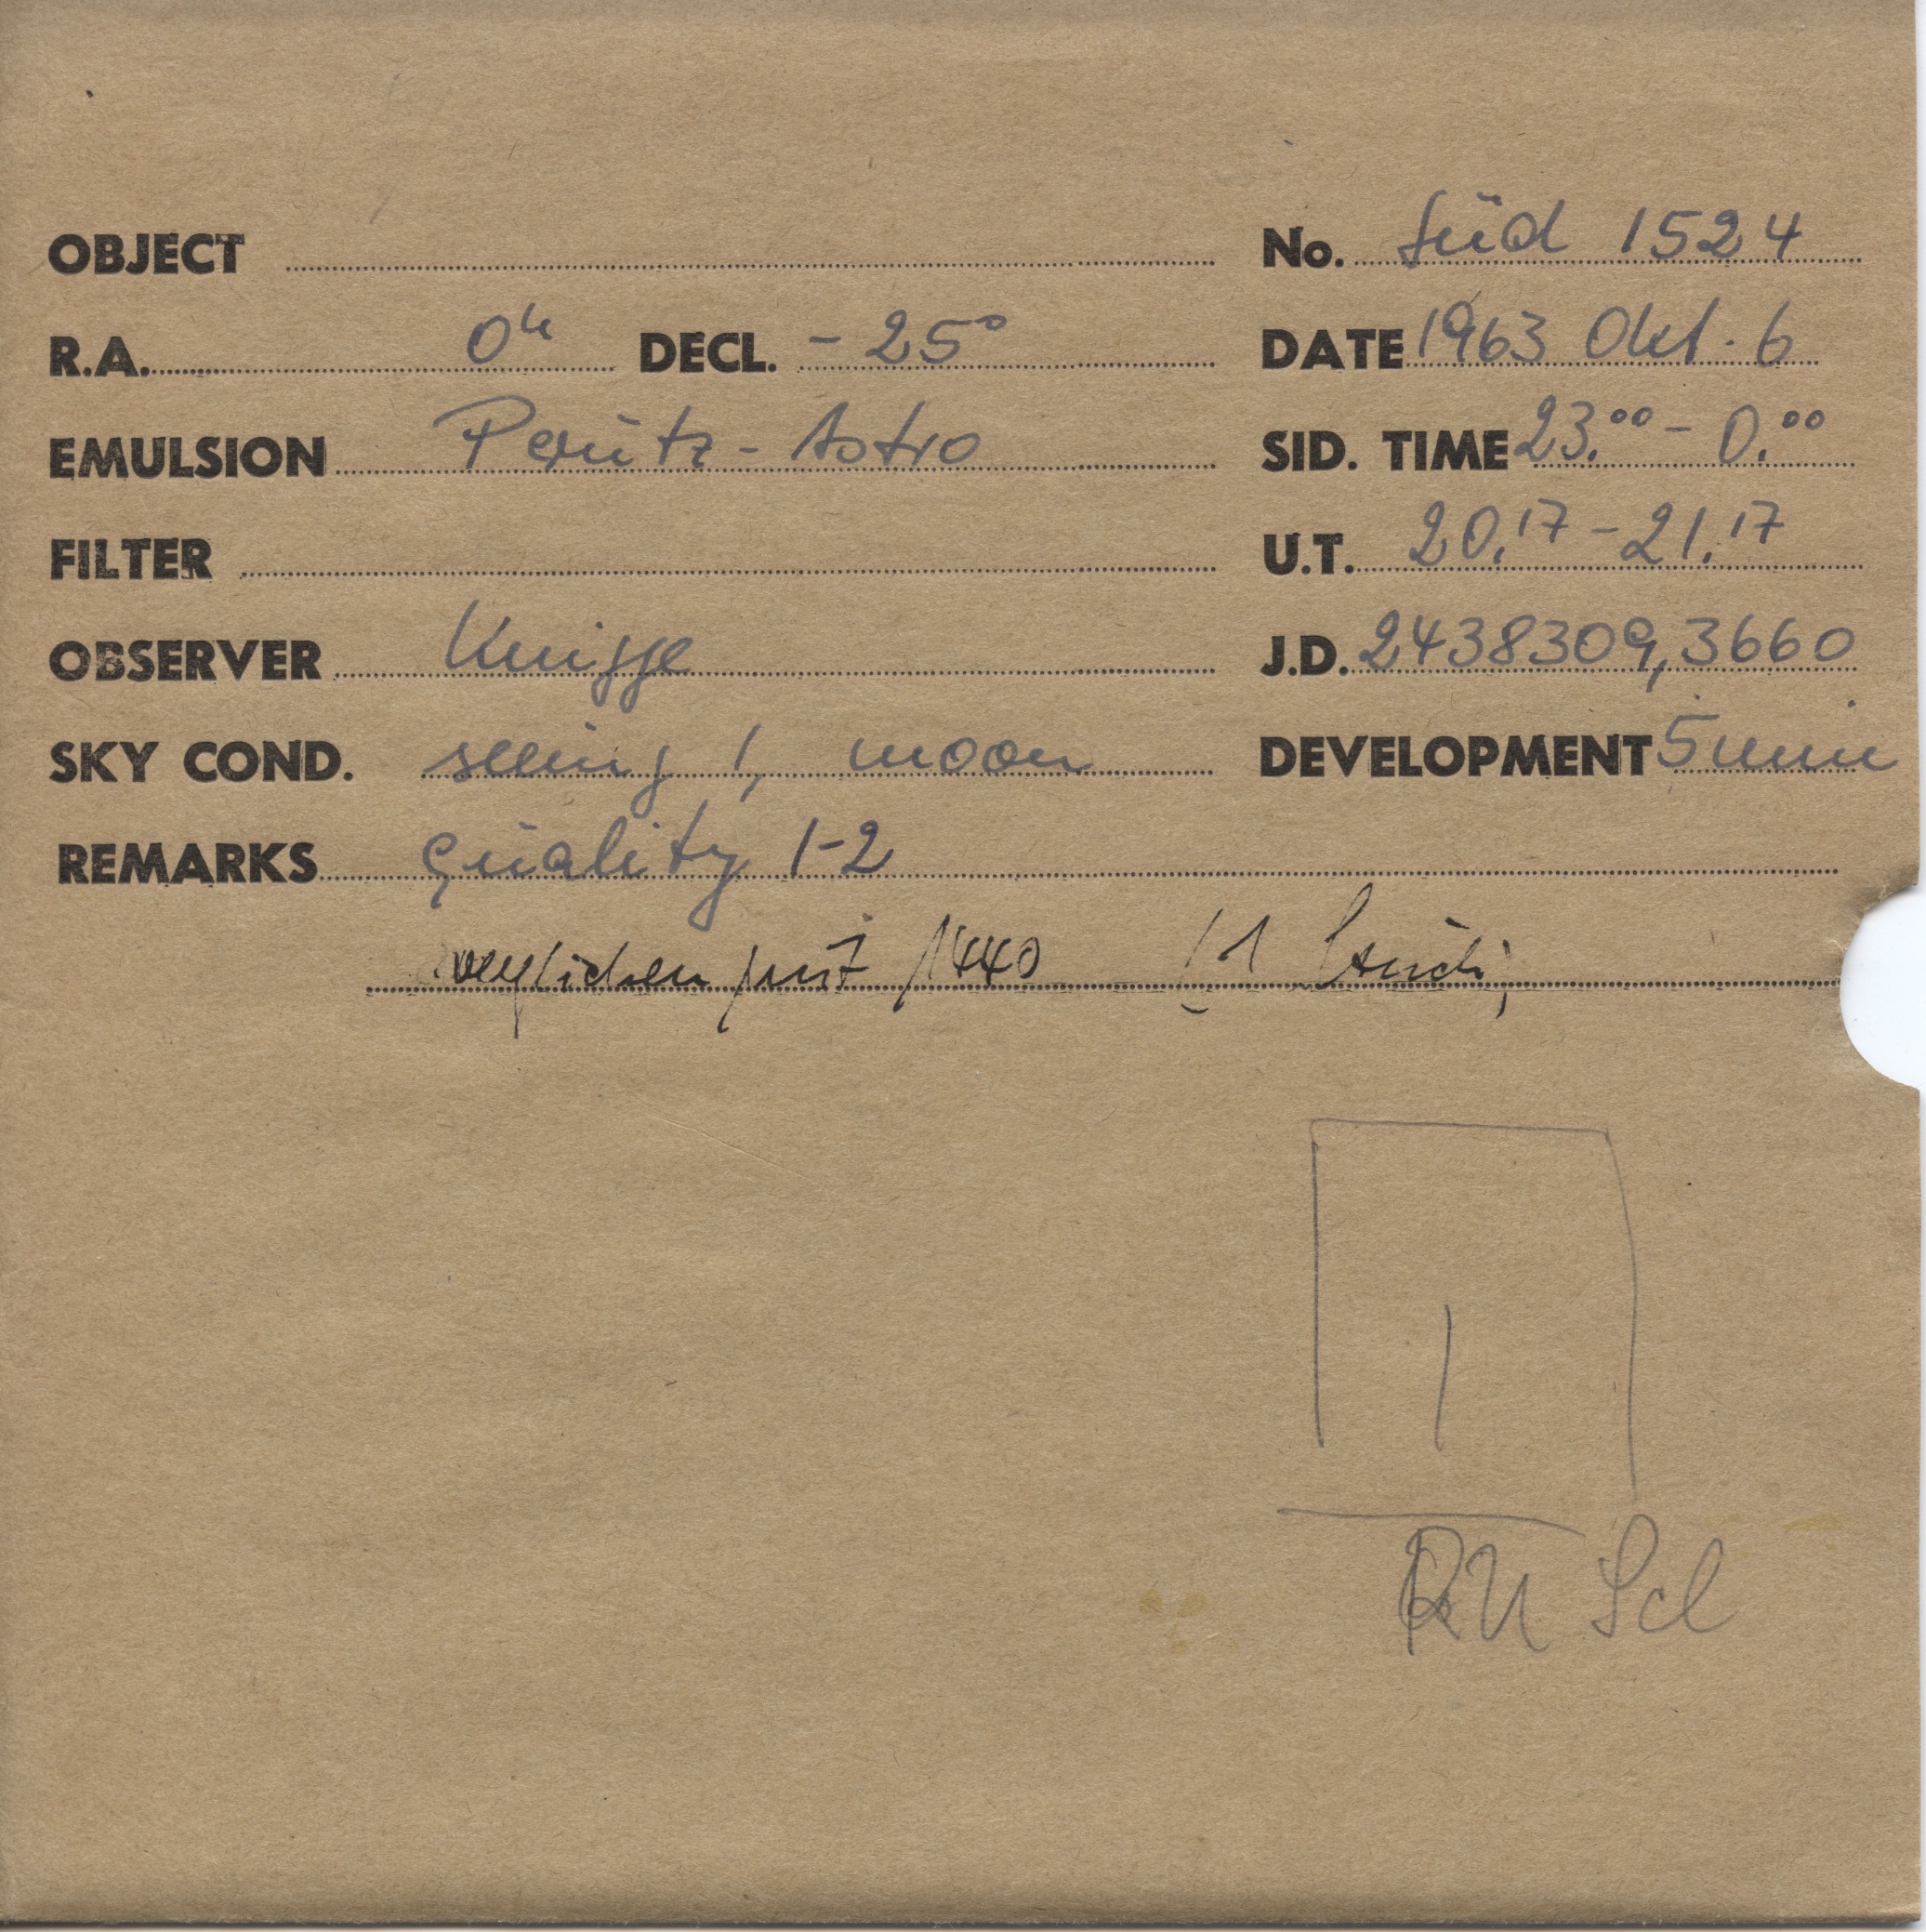 OBJECT No. Süd 1524
R.A. 0h DECL. -25° DATE 1963 Okt. 6
EMULSION Perutz-Astro SID. TIME 23.00 - 0.00
FILTER U.T. 20.17 - 21.17
OBSERVER Knigge J.D. 2438309,3660
SKY COND. seeing 1, moon DEVELOPMENT 5 min
REMARKS quality 1-2
verglichen mit 1440 (1
RU Scl